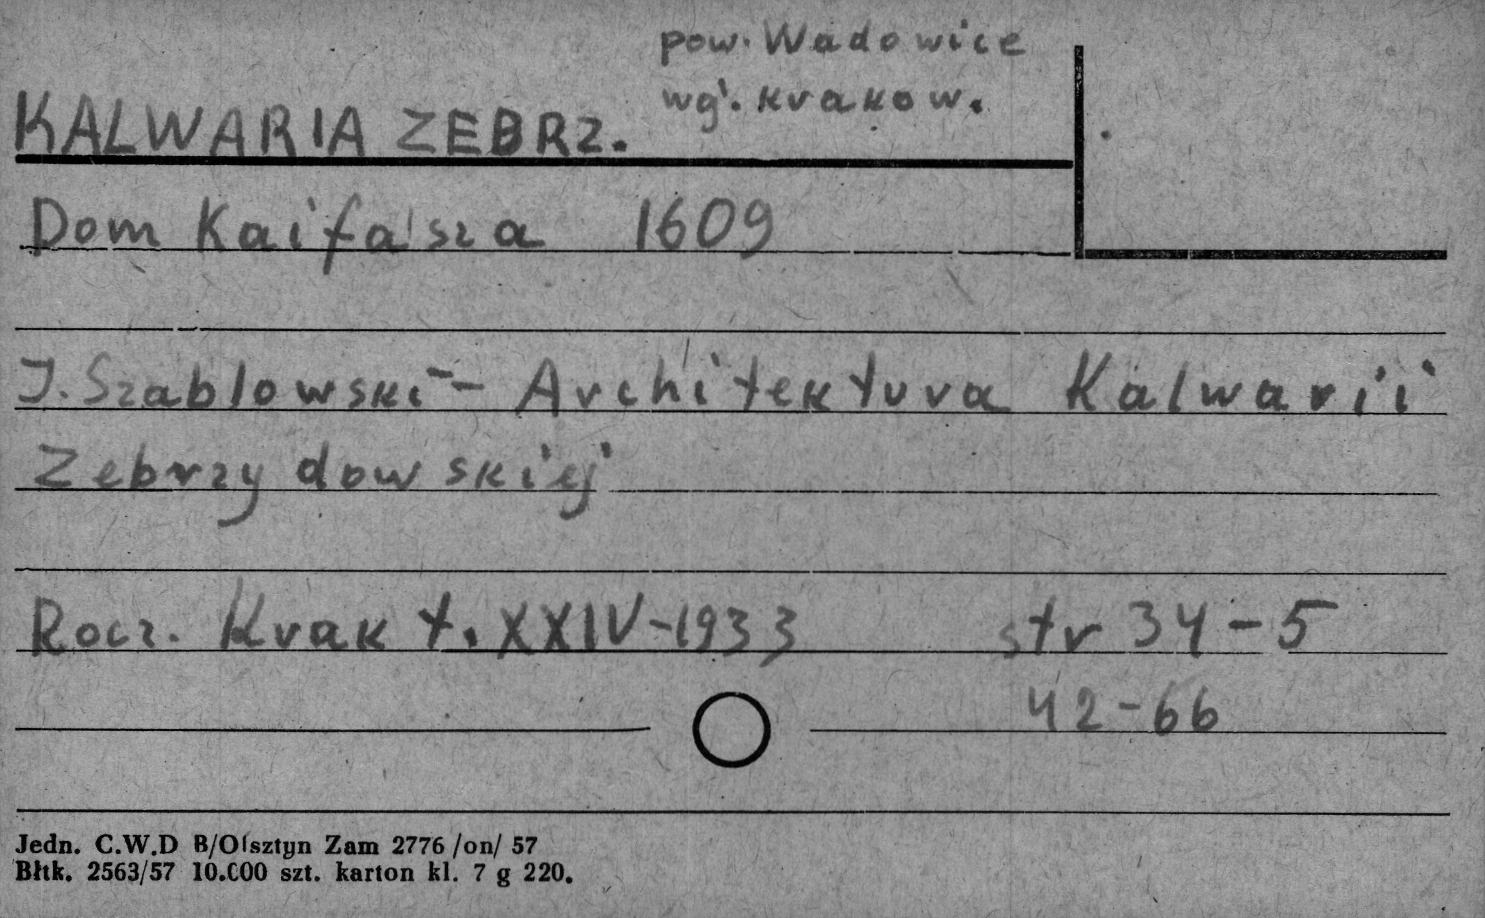 pow. Wadowice
wg. krakow.
KALWARIA ZEBRZ.
Dom Kaifasza 1609
J. Szablowski - Architektura Kalwarii
Zebrzydowskiej
Rocz. Krak t. XXIV-1933 str 34-5
42-66
Jedn. C.W.D B/Olsztyn Zam 2776 /on/ 57
Błtk. 2563/57 10.000 szt. karton kl. 7 g 220.